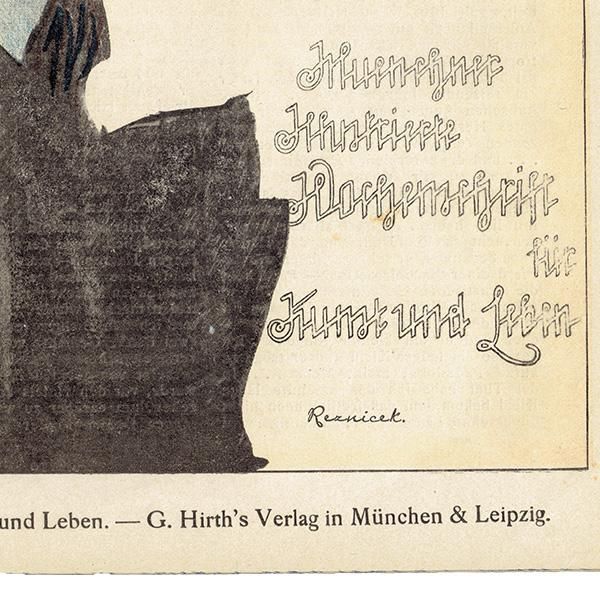 Muenchner
Illustrierte
Wochenschrift
für
Kunst und Leben
Reznicek.
und Leben. — G. Hirth's Verlag in München & Leipzig.